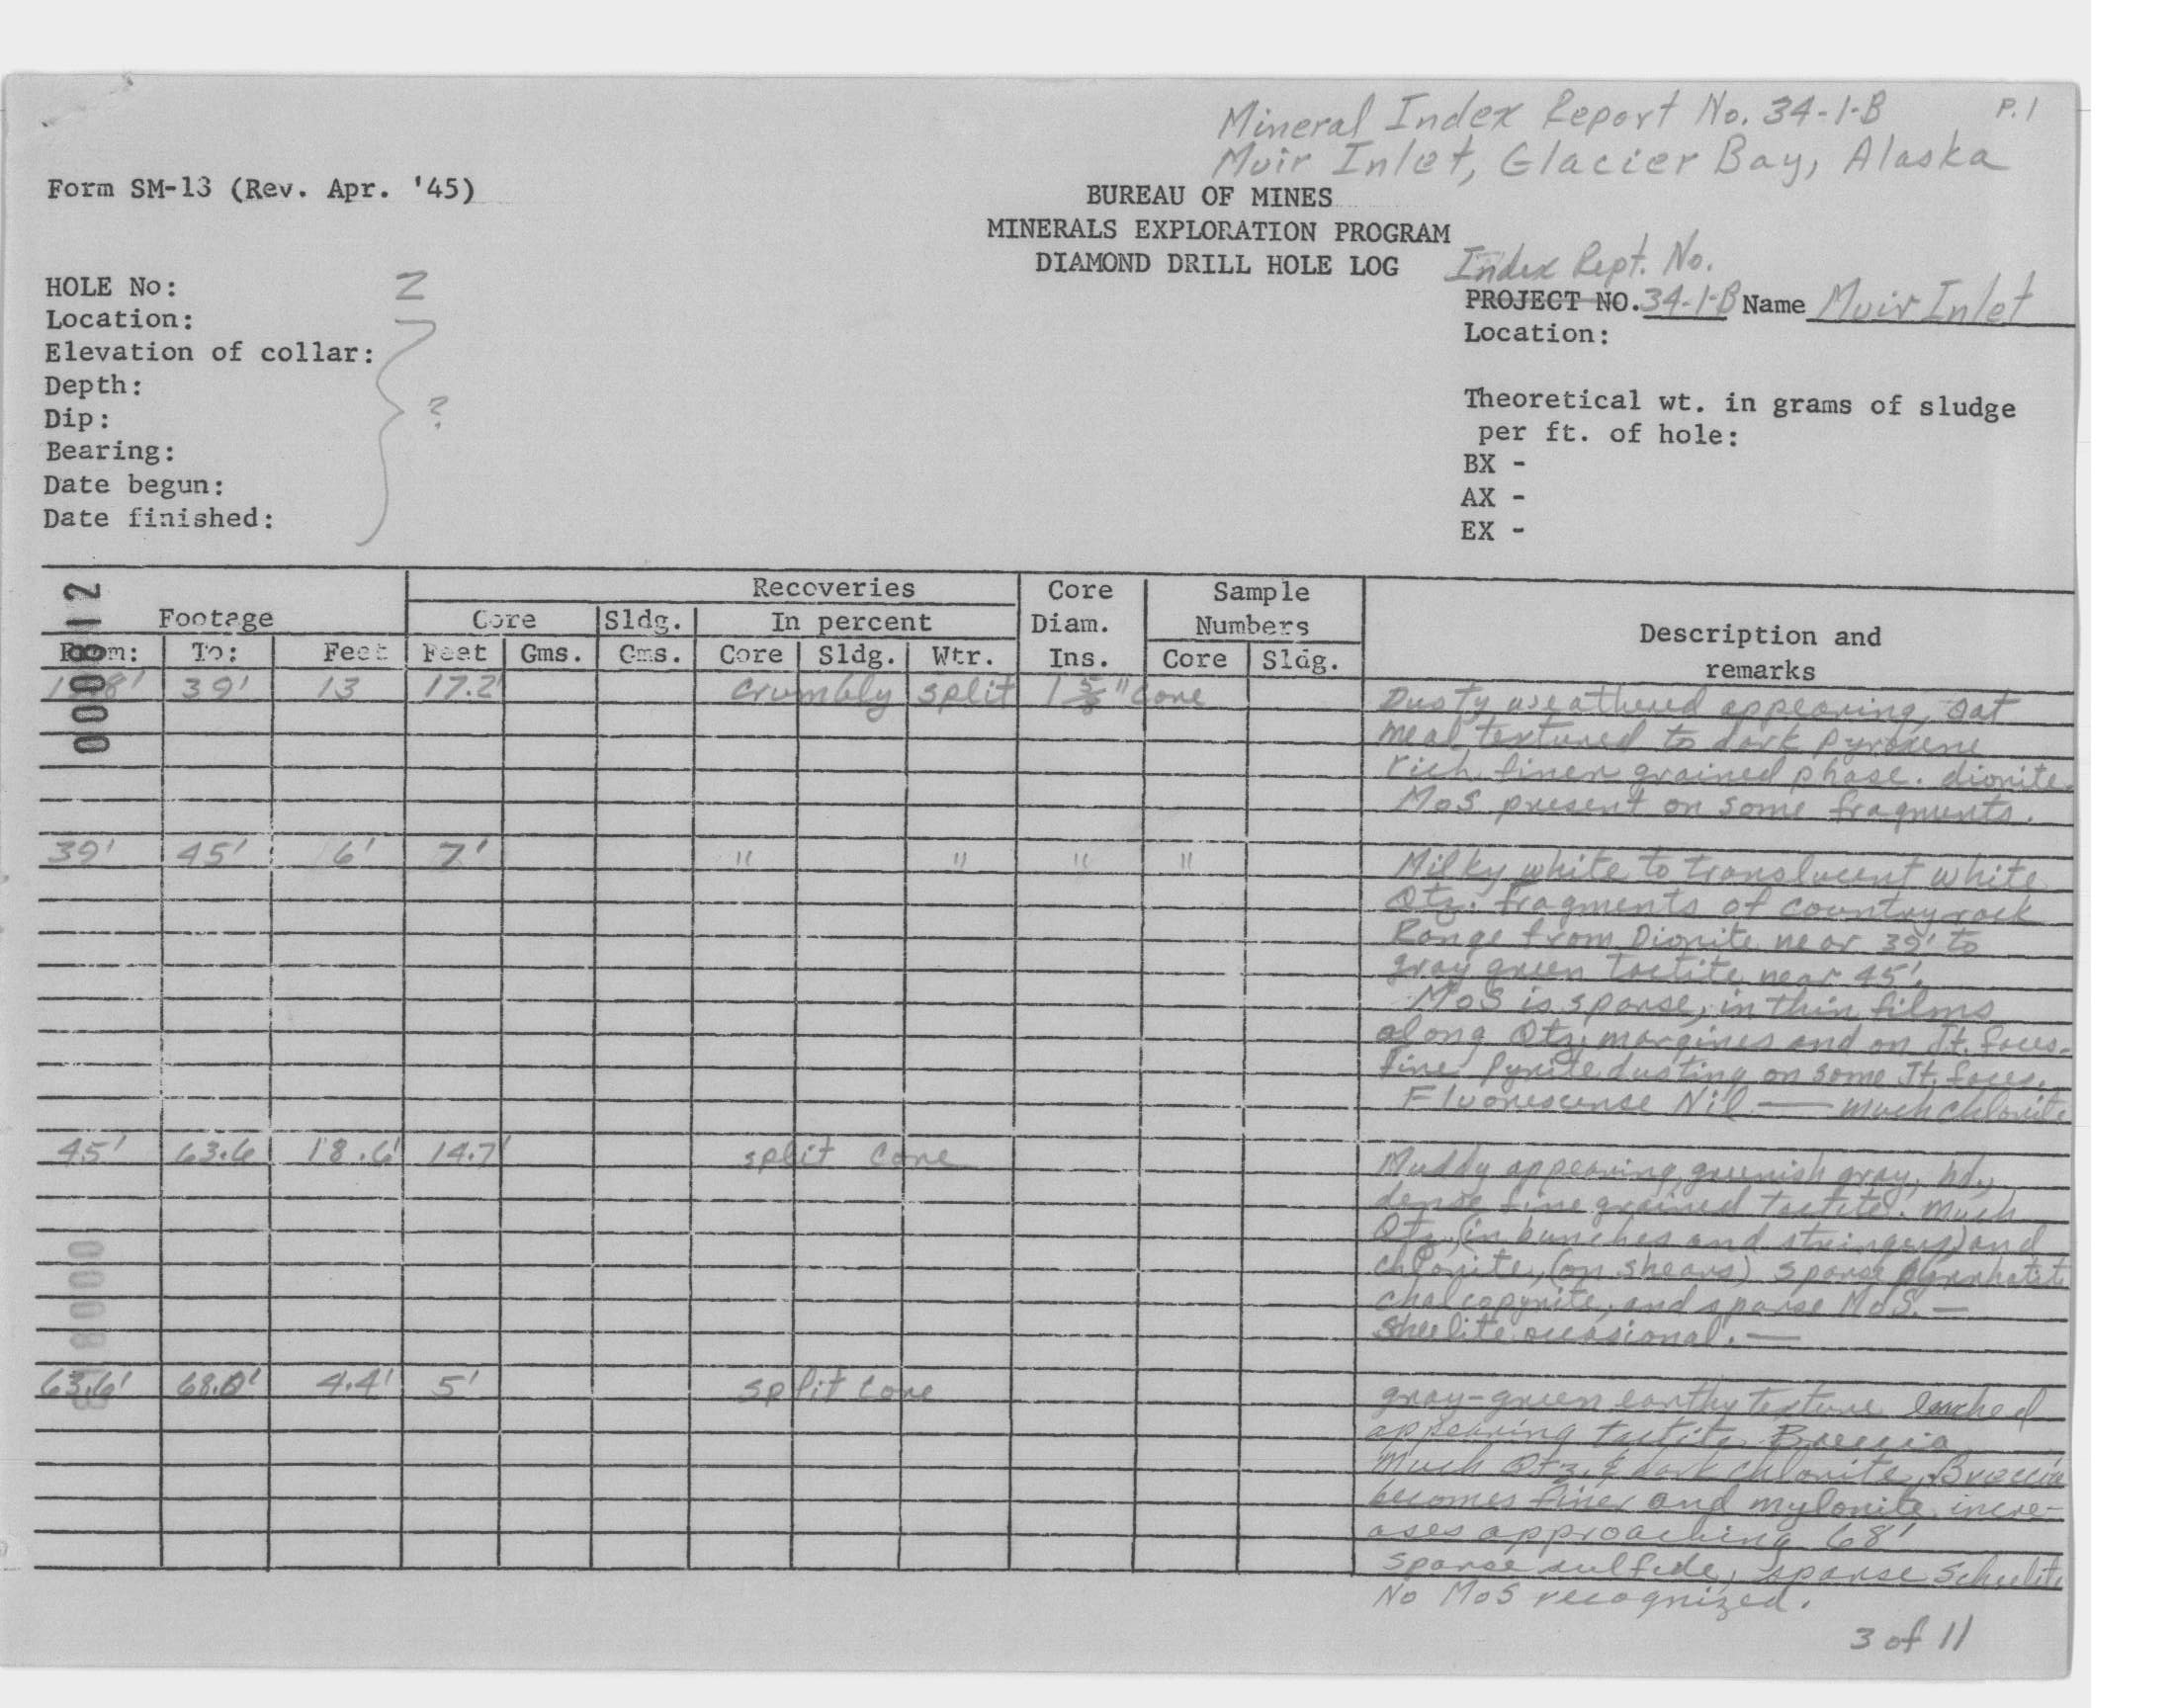 Mineral Index Report No. 34-1-B P.1
Muir Inlet, Glacier Bay, Alaska
Form SM-13 (Rev. Apr. '45)
BUREAU OF MINES
MINERALS EXPLORATION PROGRAM
DIAMOND DRILL HOLE LOG
Index Rept. No.
HOLE No: 2
PROJECT NO. 34-1-B Name Muir Inlet
Location:
Location:
Elevation of collar:
Depth:
Dip:
?
Bearing:
Date begun:
Date finished:
Theoretical wt. in grams of sludge
per ft. of hole:
BX -
AX -
EX -
000812
Footage Recoveries Core Diam. Ins. Sample Numbers Description and remarks
Core Sldg. In percent
From: To: Feet Feet Gms. Gms. Core Sldg. Wtr. Core Sldg.
39' 13 17.2' crumbly split 1 5/8" core
Dusty weathered appearing, oat
meal textured to dark pyroxene
rich finer grained phase. diorite
MoS present on some fragments.
39' 45' 6' 7' " " " "
Milky white to translucent white
Qtz. fragments of country rock
Range from Diorite near 39' to
gray green tactite near 45'.
MoS is sparse, in thin films
along Qtz. margines and on Jt. faces.
Fine Pyrite dusting on some Jt. faces.
Fluorescense Nil — much chlorite
45' 63.6 18.6' 14.7' split core
Muddy appearing, greenish gray, hd,
dense fine grained tactite. Much
Qtz. (in bunches and stringers) and
chlorite, (on shears) sparse
chalcopyrite, and sparse MoS. —
Sheelite occasional. —
000813
63.6' 68.0' 4.4' 5' split core
gray-green earthy texture leached
appearing tactite Breccia
Much Qtz. & dark chlorite, Breccia
becomes finer and mylonite incre-
ases approaching 68'
sparse sulfide, sparse Scheelite
No MoS recognized.
3 of 11